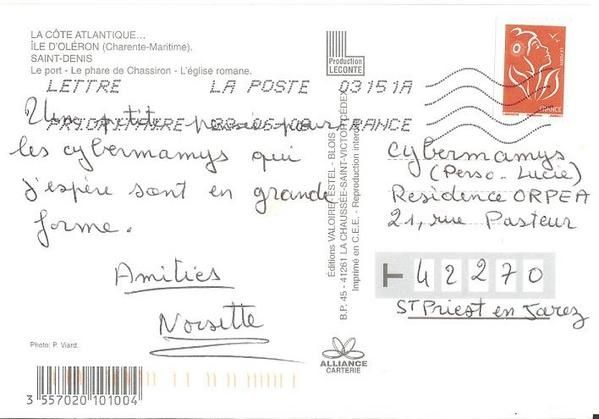 LA CÔTE ATLANTIQUE...
ÎLE D'OLÉRON (Charente-Maritime).
SAINT-DENIS
Le port - Le phare de Chassiron - L'église romane.
LETTRE LA POSTE 03151A
PRIORITAIRE FRANCE
Une petite pensée pour
les cybermamys qui
j'espère sont en grande
forme.
Amitiés
Noisette
Photo: P. Viard.
3 557020 101004
Production
LECONTE
Éditions VALOIRE-ESTEL - BLOIS
B.P. 45 - 41261 LA CHAUSSÉE-SAINT-VICTOR CEDEX
Imprimé en C.E.E. - Reproduction interdite
ALLIANCE
CARTERIE
LA POSTE
FRANCE
Cybermamys
(Perso-Lucie)
Residence ORPEA
21, rue Pasteur
42270
ST Priest en Jarez